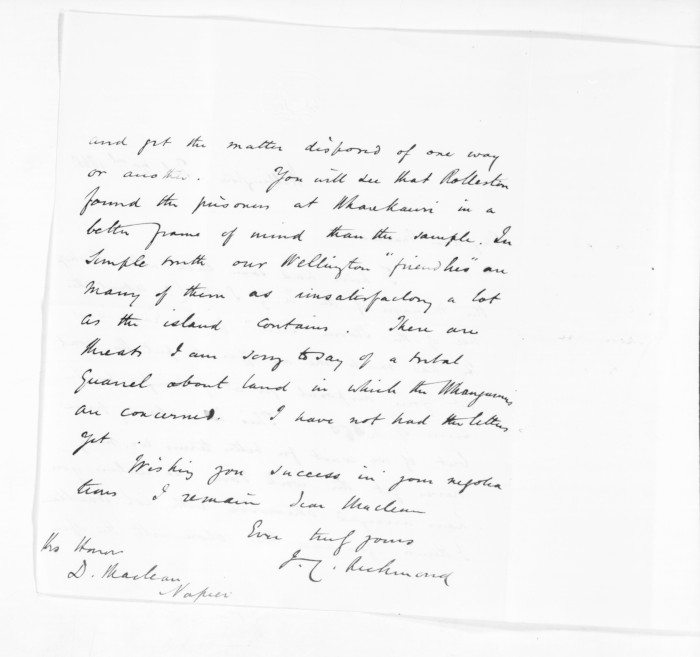 and get the matter disposed of one way
or another. You will see that Rolleston
found the prisoners at Wharekauri in a
better frame of mind than the sample. In
simple truth our Wellington "friendlies" are
many of them as unsatisfactory a lot
as the island contains. There are
threats I am sorry to say of a tribal
quarrel about land in which the Whanganuis
are concerned. I have not had the letters
yet.
Wishing you success in your negotia
tions I remain dear Maclean
Ever truly yours
J. C. Richmond
His Honor
D. Maclean
Napier